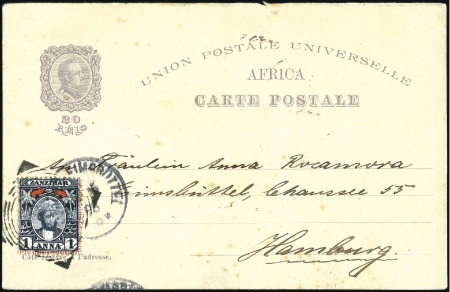 UNION POSTALE UNIVERSELLE
AFRICA
CARTE POSTALE
20
RÉIS
Fräulein Anna Rocamora
Eimsbüttel, Chaussee 55
Hamburg
EIMSBÜTTEL
ZANZIBAR
1 ANNA 1
Côté l'adresse